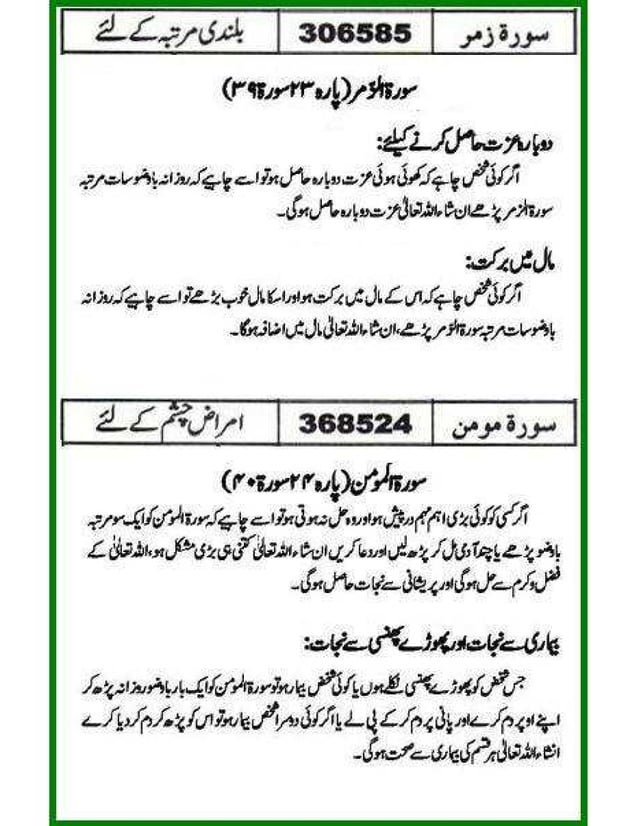 سورۃ زمر 306585 بلندی مرتبہ کے لئے
سورۃ الزّمر (پارہ ۲۳ سورۃ ۳۹)
دوبارہ عزت حاصل کرنے کیلئے:
اگر کوئی شخص چاہے کہ کھوئی ہوئی عزت دوبارہ حاصل ہو تو اسے چاہیے کہ روزانہ باوضو سات مرتبہ
سورۃ الزمر پڑھے ان شاء اللہ تعالیٰ عزت دوبارہ حاصل ہوگی۔
مال میں برکت:
اگر کوئی شخص چاہے کہ اس کے مال میں برکت ہو اور اسکا مال خوب بڑھے تو اسے چاہیے کہ روزانہ
باوضو سات مرتبہ سورۃ الزّمر پڑھے، ان شاء اللہ تعالیٰ مال میں اضافہ ہوگا۔
سورۃ مومن 368524 امراض چشم کے لئے
سورۃ المؤمن (پارہ ۲۴ سورۃ ۴۰)
اگر کسی کو کوئی بڑی اہم مہم درپیش ہو اور وہ حل نہ ہوتی ہو تو اسے چاہیے کہ سورۃ المؤمن کو ایک سو مرتبہ
باوضو پڑھے یا چند آدمی مل کر پڑھ لیں اور دعا کریں ان شاء اللہ تعالیٰ کتنی ہی بڑی مشکل ہو، اللہ تعالیٰ کے
فضل و کرم سے حل ہوگی اور پریشانی سے نجات حاصل ہوگی۔
بیماری سے نجات اور پھوڑے پھنسی سے نجات:
جس شخص کو پھوڑے پھنسی نکلے ہوں یا کوئی شخص بیمار ہو تو سورۃ المؤمن کو ایک بار باوضو روزانہ پڑھ کر
اپنے اوپر دم کرے اور پانی پر دم کر کے پی لے یا اگر کوئی دوسرا شخص بیمار ہو تو اس کو پڑھ کر دم کر دیا کرے
انشاء اللہ تعالیٰ ہر قسم کی بیماری سے صحت ہوگی۔